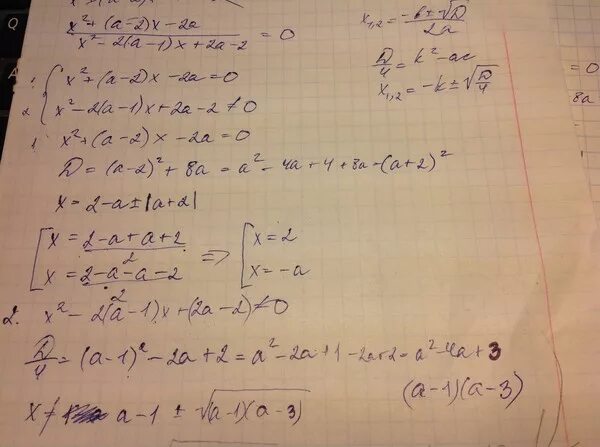 x² + (a-2)x - 2a / x² - 2(a-1)x + 2a - 2 = 0
x₁,₂ = -b ± √D / 2a
D/4 = k² - ac
x₁,₂ = -k ± √D/4
1. { x² + (a-2)x - 2a = 0
2. x² - 2(a-1)x + 2a - 2 ≠ 0
1. x² + (a-2)x - 2a = 0
D = (a-2)² + 8a = a² - 4a + 4 + 8a - (a+2)²
x = 2 - a ± |a+2|
[ x = 2-a+a+2 / 2 ⇒ [ x = 2
x = 2-a-a-2 / 2 x = -a
2. x² - 2(a-1)x + (2a-2) ≠ 0
D/4 = (a-1)² - 2a + 2 = a² - 2a + 1 - 2a + 2 = a² - 4a + 3
(a-1)(a-3)
x ≠ a-1 ± √(a-1)(a-3)
= 0
8a
Q